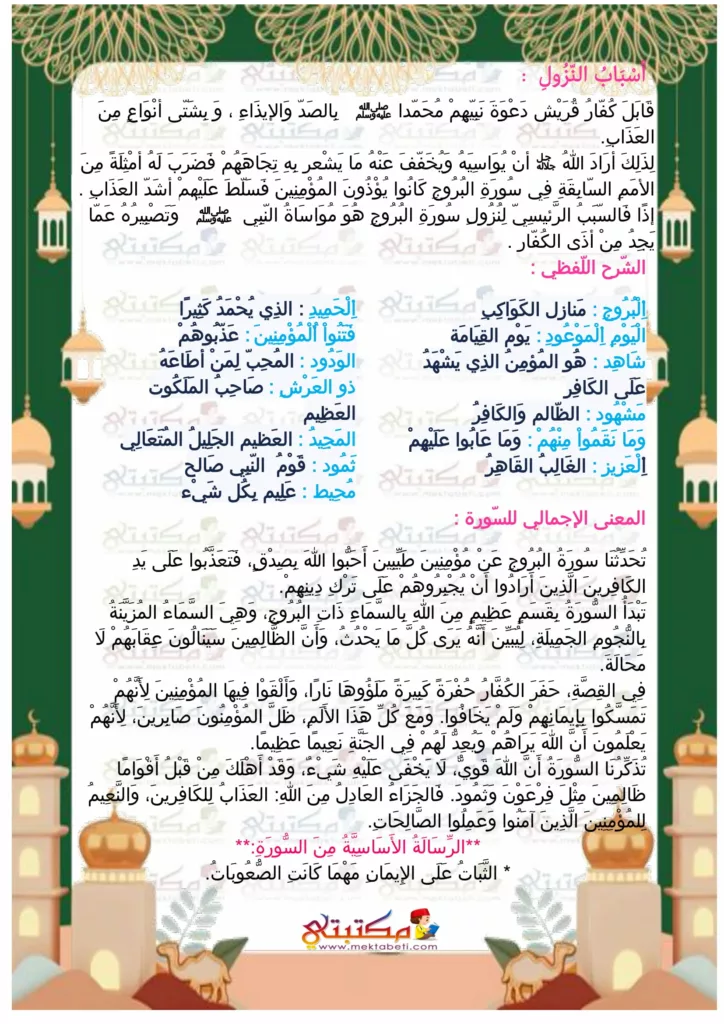 أَسْبَابُ النّزُولِ :
قَابَلَ كُفّارُ قُرَيْشٍ دَعْوَةَ نَبِيّهِمْ مُحَمّدا ﷺ بِالصَدّ وَالإيذَاءِ ، وَ بِشَتّى أنْوَاعٍ مِنَ
العَذَابِ.
لِذَلِكَ أرَادَ اللهُ ﷻ أنْ يُوَاسِيَه وَيُخَفّفَ عَنْهُ مَا يَشْعر بِهِ تِجَاهَهُمْ فَضَرَبَ لَهُ أمْثِلَةً مِنَ
الأمَمِ السّابِقةِ فِي سُورَةِ البُرُوجِ كَانُوا يُؤْذُونَ المُؤْمِنِينَ فَسَلّطَ عَلَيْهِمْ أشَدّ العَذَابِ .
إذًا فَالسّبَبُ الرَّئِيسِيّ لِنُزُولِ سُورَةِ البُرُوجِ هُوَ مُوَاسَاةُ النّبِي ﷺ وَتَصْبِيرُهُ عَمّا
يَجِدُ مِنْ أذَى الكُفّارِ .
الشّرح اللّفظي :
اِلْبُرُوجِ : مَنازِل الكَوَاكِبِ
الْيَوْمِ اِلْمَوْعُودِ : يَوْم القِيَامَة
شَاهِد : هُو المُؤمِنُ الذِي يَشْهَدُ
عَلَى الكَافِر
مَشْهُود : الظّالم وَالكَافِرُ
وَمَا نَقَمُواْ مِنْهُمْ : وَمَا عَابُوا عَلَيْهِمْ
اِلْعَزيز : الغَالِبُ القَاهِرُ
اِلْحَمِيدِ : الذِي يُحْمَدُ كَثِيرًا
فَتَنُواْ اُلْمُؤْمِنِينَ : عَذّبوهُمْ
الوَدُود : المُحِبّ لِمَنْ أطَاعَهُ
ذو العَرْش : صَاحِبُ المَلَكُوت
العَظِيم
المَجِيدُ : العَظيم الجَلِيلُ المُتَعَالِي
ثَمُود : قَوْمُ النّبِي صَالح
مُحِيط : عَلِيم بِكُل شَيْء
المعنى الإجمالي للسّورة :
تُحَدِّثُنَا سُورَةُ البُرُوجِ عَنْ مُؤْمِنِينَ طَيِّبِينَ أَحَبُّوا اللهَ بِصِدْقٍ، فَتَعَذَّبُوا عَلَى يَدِ
الكَافِرِينَ الَّذِينَ أَرَادُوا أَنْ يُجْبِرُوهُمْ عَلَى تَرْكِ دِينِهِمْ.
تَبْدَأُ السُّورَةُ بِقَسَمٍ عَظِيمٍ مِنَ اللهِ بِالسَّمَاءِ ذَاتِ البُرُوجِ، وَهِيَ السَّمَاءُ المُزَيَّنَةُ
بِالنُّجُومِ الجَمِيلَةِ، لِيُبَيِّنَ أَنَّهُ يَرَى كُلَّ مَا يَحْدُثُ، وَأَنَّ الظَّالِمِينَ سَيَنَالُونَ عِقَابَهُمْ لَا
مَحَالَةَ.
فِي القِصَّةِ، حَفَرَ الكُفَّارُ حُفْرَةً كَبِيرَةً مَلَؤُوهَا نَارًا، وَأَلْقَوْا فِيهَا المُؤْمِنِينَ لِأَنَّهُمْ
تَمَسَّكُوا بِإِيمَانِهِمْ وَلَمْ يَخَافُوا. وَمَعَ كُلِّ هَذَا الأَلَمِ، ظَلَّ المُؤْمِنُونَ صَابِرِينَ، لِأَنَّهُمْ
يَعْلَمُونَ أَنَّ اللهَ يَرَاهُمْ وَيُعِدُّ لَهُمْ فِي الجَنَّةِ نَعِيمًا عَظِيمًا.
تُذَكِّرُنَا السُّورَةُ أَنَّ اللهَ قَوِيٌّ، لَا يَخْفَى عَلَيْهِ شَيْءٌ، وَقَدْ أَهْلَكَ مِنْ قَبْلُ أَقْوَامًا
ظَالِمِينَ مِثْلَ فِرْعَوْنَ وَثَمُودَ. فَالجَزَاءُ العَادِلُ مِنَ اللهِ: العَذَابُ لِلكَافِرِينَ، وَالنَّعِيمُ
لِلمُؤْمِنِينَ الَّذِينَ آمَنُوا وَعَمِلُوا الصَّالِحَاتِ.
**الرِّسَالَةُ الأَسَاسِيَّةُ مِنَ السُّورَةِ:**
* الثَّبَاتُ عَلَى الإِيمَانِ مَهْمَا كَانَتِ الصُّعُوبَاتُ.
مكتبتي
www.mektabeti.com